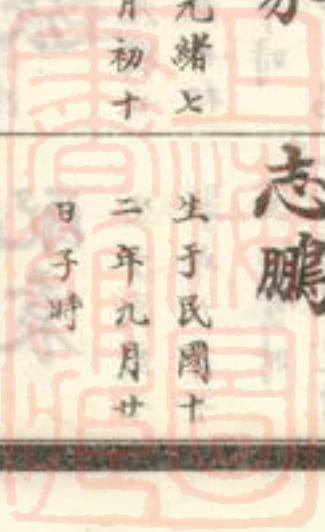 元緒七
月初十
志鵬
生于民國十
二年九月廿
日子時